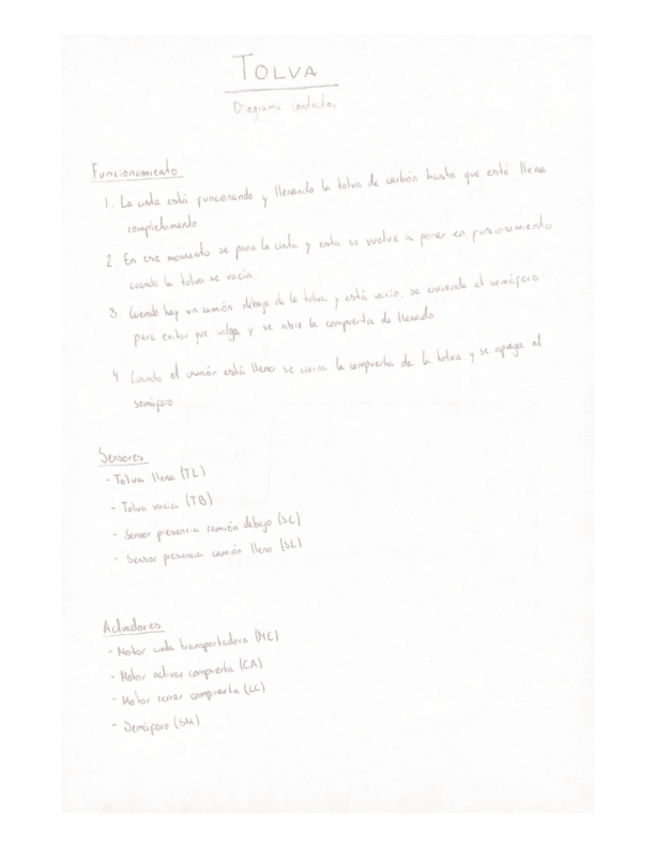 TOLVA
Diagrama Contactos
Funcionamiento
1. La cinta está funcionando y llenando la tolva de carbón hasta que esté llena
completamente
2. En ese momento se para la cinta y esta se vuelve a poner en funcionamiento
cuando la tolva se vacia
3 Cuando hay un camión debajo de la tolva y está vacio, se enciende el semáforo
para evitar que salga y se abre la compuerta de llenado
4 Cuando el camión está lleno se cierra la compuerta de la tolva y se apaga el
semáforo
Sensores
- Tolva llena (TL)
- Tolva vacia (TB)
- Sensor presencia camión debajo (SC)
- Sensor presencia camión lleno (SL)
Actuadores
- Motor cinta transportadora (MC)
- Motor activar compuerta (CA)
- Motor cerrar compuerta (CC)
- Semáforo (SM)